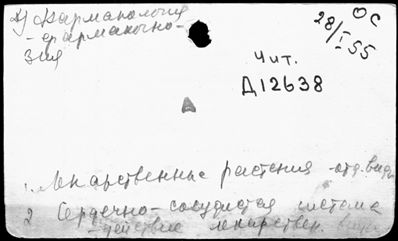 Фармакология
- фармакогно-
зия
ОС
28/I 55
Чит.
Д12638
1. Лекарственные растения - отд. виды
2 Сердечно-сосудистая система
- действие лекарствен.